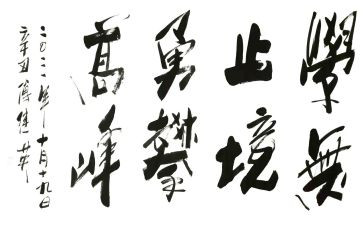 學無
止境
勇攀
高峰
二〇二一年十月十九日
辛丑